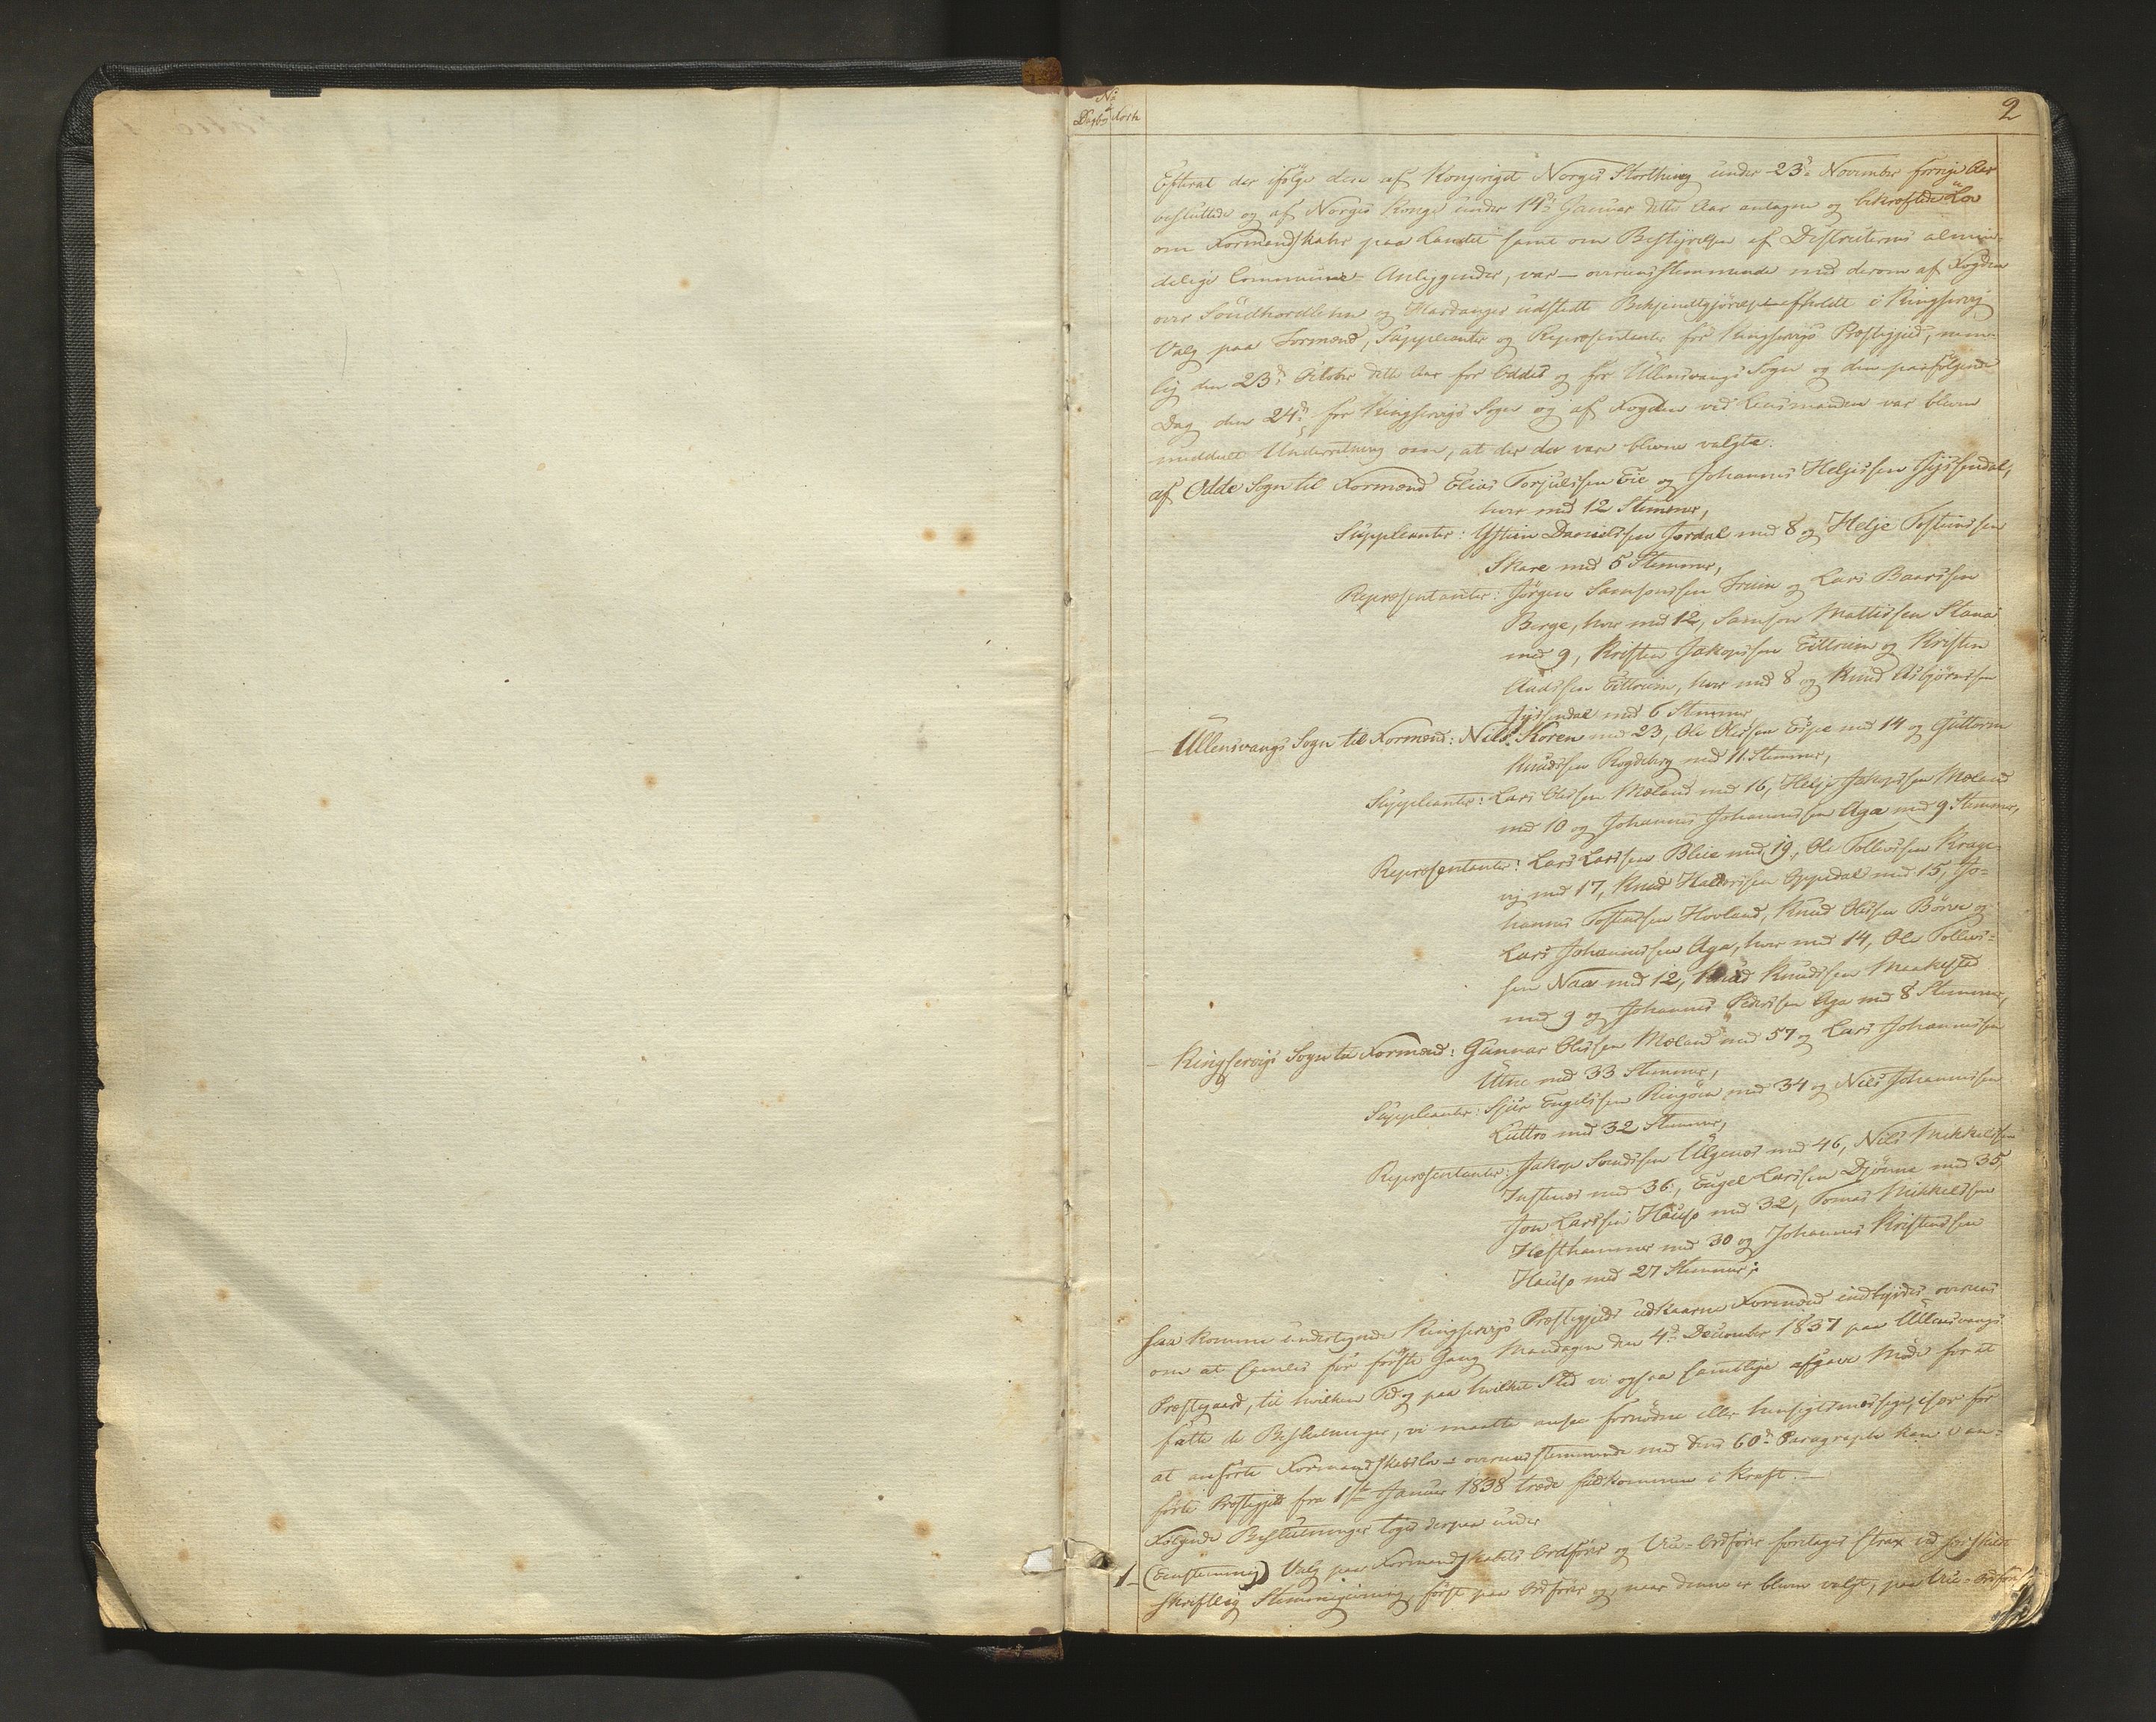 No
2
Efterat der ifölge den af Kongeriget Norges Storthing under 23de November forrige Aar
besluttede og af Norges Konge under 14de Januar dette Aar antagne og bekræftede Lov
om Formandskaber paa Landet samt om Bestyrelsen af Districternes almin-
delige Communal-Anliggender, var – overensstemmende med derom af Fogden
over Söndhordlehn og Hardanger udstedte Bekjendtgjörelse – afholdt i Kingservig
Valg paa Formænd, Suppleanter og Repræsentanter for Kingservigs Præstegjeld, nem-
lig den 23de Oktober dette Aar for Oddes og for Ullensvangs Sogn og den paafölgende
Dag den 24de for Kingservigs Sogn og af Fogden ved Lensmanden var bleven
meddelt Underretning om, at der da vare blevne valgte:
af Odde Sogn til Formænd Elias Torjulssen Eie og Johannes Helgessen Jyssendal,
hver med 12 Stemmer,
Suppleanter: Östen Danielssen Jordal med 8 og Helje Tosteinssen
Skare med 5 Stemmer,
Repræsentanter: Jörgen Samsonssen Freim og Lars Baarssen
Berge, hver med 12, Samson Mattissen Stana
med 9, Kristen Jakopssen Eittreim og Kristen
Aadssen Eittreim, hver med 8 og Knud Asbjörnssen
Jyssendal med 6 Stemmer
– Ullensvangs Sogn til Formænd: Nils Koren med 23, Ole Olessen Espe med 14 og Guttorm
Knudssen Rogdeberg med 11 Stemmer,
Suppleanter: Lars Olessen Mæland med 16, Helje Jakopssen Mæland
med 10 og Johannes Johannessen Aga med 9 Stemmer,
Repræsentanter: Lars Larssen Bleie med 19, Ole Tollevssen Krage-
vig med 17, Knud Haldorssen Oppedal med 15, Jo-
hannes Tostenssen Hovland, Knud Olessen Börve og
Lars Johannessen Aga, hver med 14, Ole Tollevs-
sen Naa med 12, Knud Knudssen Maakestad
med 9 og Johannes Pederssen Aga med 8 Stemmer,
– Kingservigs Sogn til Formænd: Gunnar Olessen Mæland med 57 og Lars Johannessen
Utne med 33 Stemmer,
Suppleanter: Sjur Engelssen Ringöen med 34 og Nils Johannessen
Luttro med 32 Stemmer,
Repræsentanter: Jakop Svendssen Ulgenes med 46, Nils Mikkelssen
Instenes med 36, Engel Larssen Djönne med 35,
Jon Larssen Hauso med 32, Tomas Mikkelssen
Hesthammer med 30 og Johannes Kristenssen
Hauso med 27 Stemmer;
saa komme undertegnede Kingservigs Præstegjelds udkaarne Formænd indbyrdes overens
om at samles for förste Gang Mandagen den 4de December 1837 paa Ullensvangs
Præstegaard, til hvilken Tid og paa hvilket Sted vi ogsaa samtlige afgave Möde for at
fatte de Beslutninger, vi maatte ansee fornödne eller hensigtsmæssige, især for
at anförte Formandskabslov – overensstemmende med dens 60de Paragraph kan i an-
förte Præstegjeld fra 1ste Januar 1838 træde fuldkommen i Kraft. –
Fölgende Beslutninger toges derpaa under
1– (Eenstemmig) Valg paa Formandskabets Ordförer og Vice-Ordförer foretages strax ved særskilt
skriftlig Stemmegivning, först paa Ordförer og, naar denne er bleven valgt, paa Vice-Ordförer